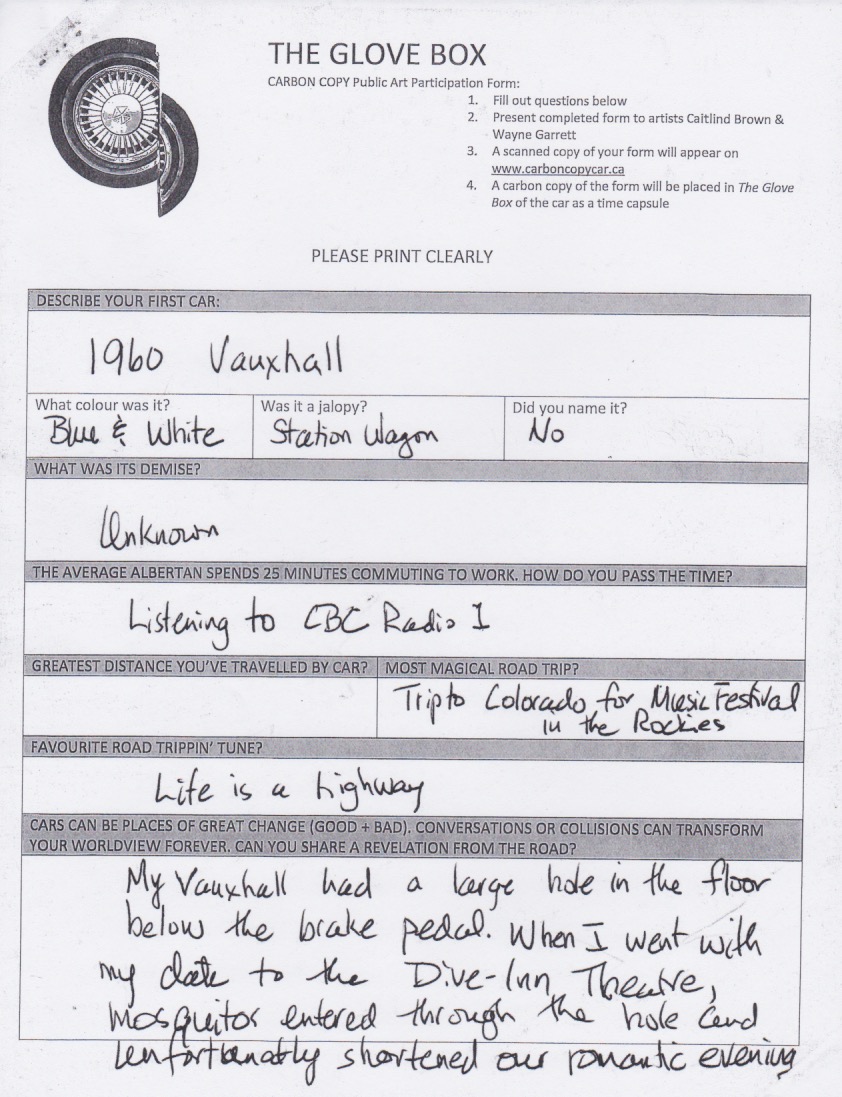 THE GLOVE BOX
CARBON COPY Public Art Participation Form:
1. Fill out questions below
2. Present completed form to artists Caitlind Brown &
Wayne Garrett
3. A scanned copy of your form will appear on
www.carboncopycar.ca
4. A carbon copy of the form will be placed in The Glove
Box of the car as a time capsule
PLEASE PRINT CLEARLY
DESCRIBE YOUR FIRST CAR:
1960 Vauxhall
What colour was it?
Blue & White
Was it a jalopy?
Station Wagon
Did you name it?
No
WHAT WAS ITS DEMISE?
Unknown
THE AVERAGE ALBERTAN SPENDS 25 MINUTES COMMUTING TO WORK. HOW DO YOU PASS THE TIME?
Listening to CBC Radio 1
GREATEST DISTANCE YOU'VE TRAVELLED BY CAR?
MOST MAGICAL ROAD TRIP?
Trip to Colorado for Music Festival
in the Rockies
FAVOURITE ROAD TRIPPIN' TUNE?
Life is a highway
CARS CAN BE PLACES OF GREAT CHANGE (GOOD + BAD). CONVERSATIONS OR COLLISIONS CAN TRANSFORM
YOUR WORLDVIEW FOREVER. CAN YOU SHARE A REVELATION FROM THE ROAD?
My Vauxhall had a large hole in the floor
below the brake pedal. When I went with
my date to the Dive-Inn Theatre,
mosquitos entered through the hole and
unfortunatly shortened our romantic evening